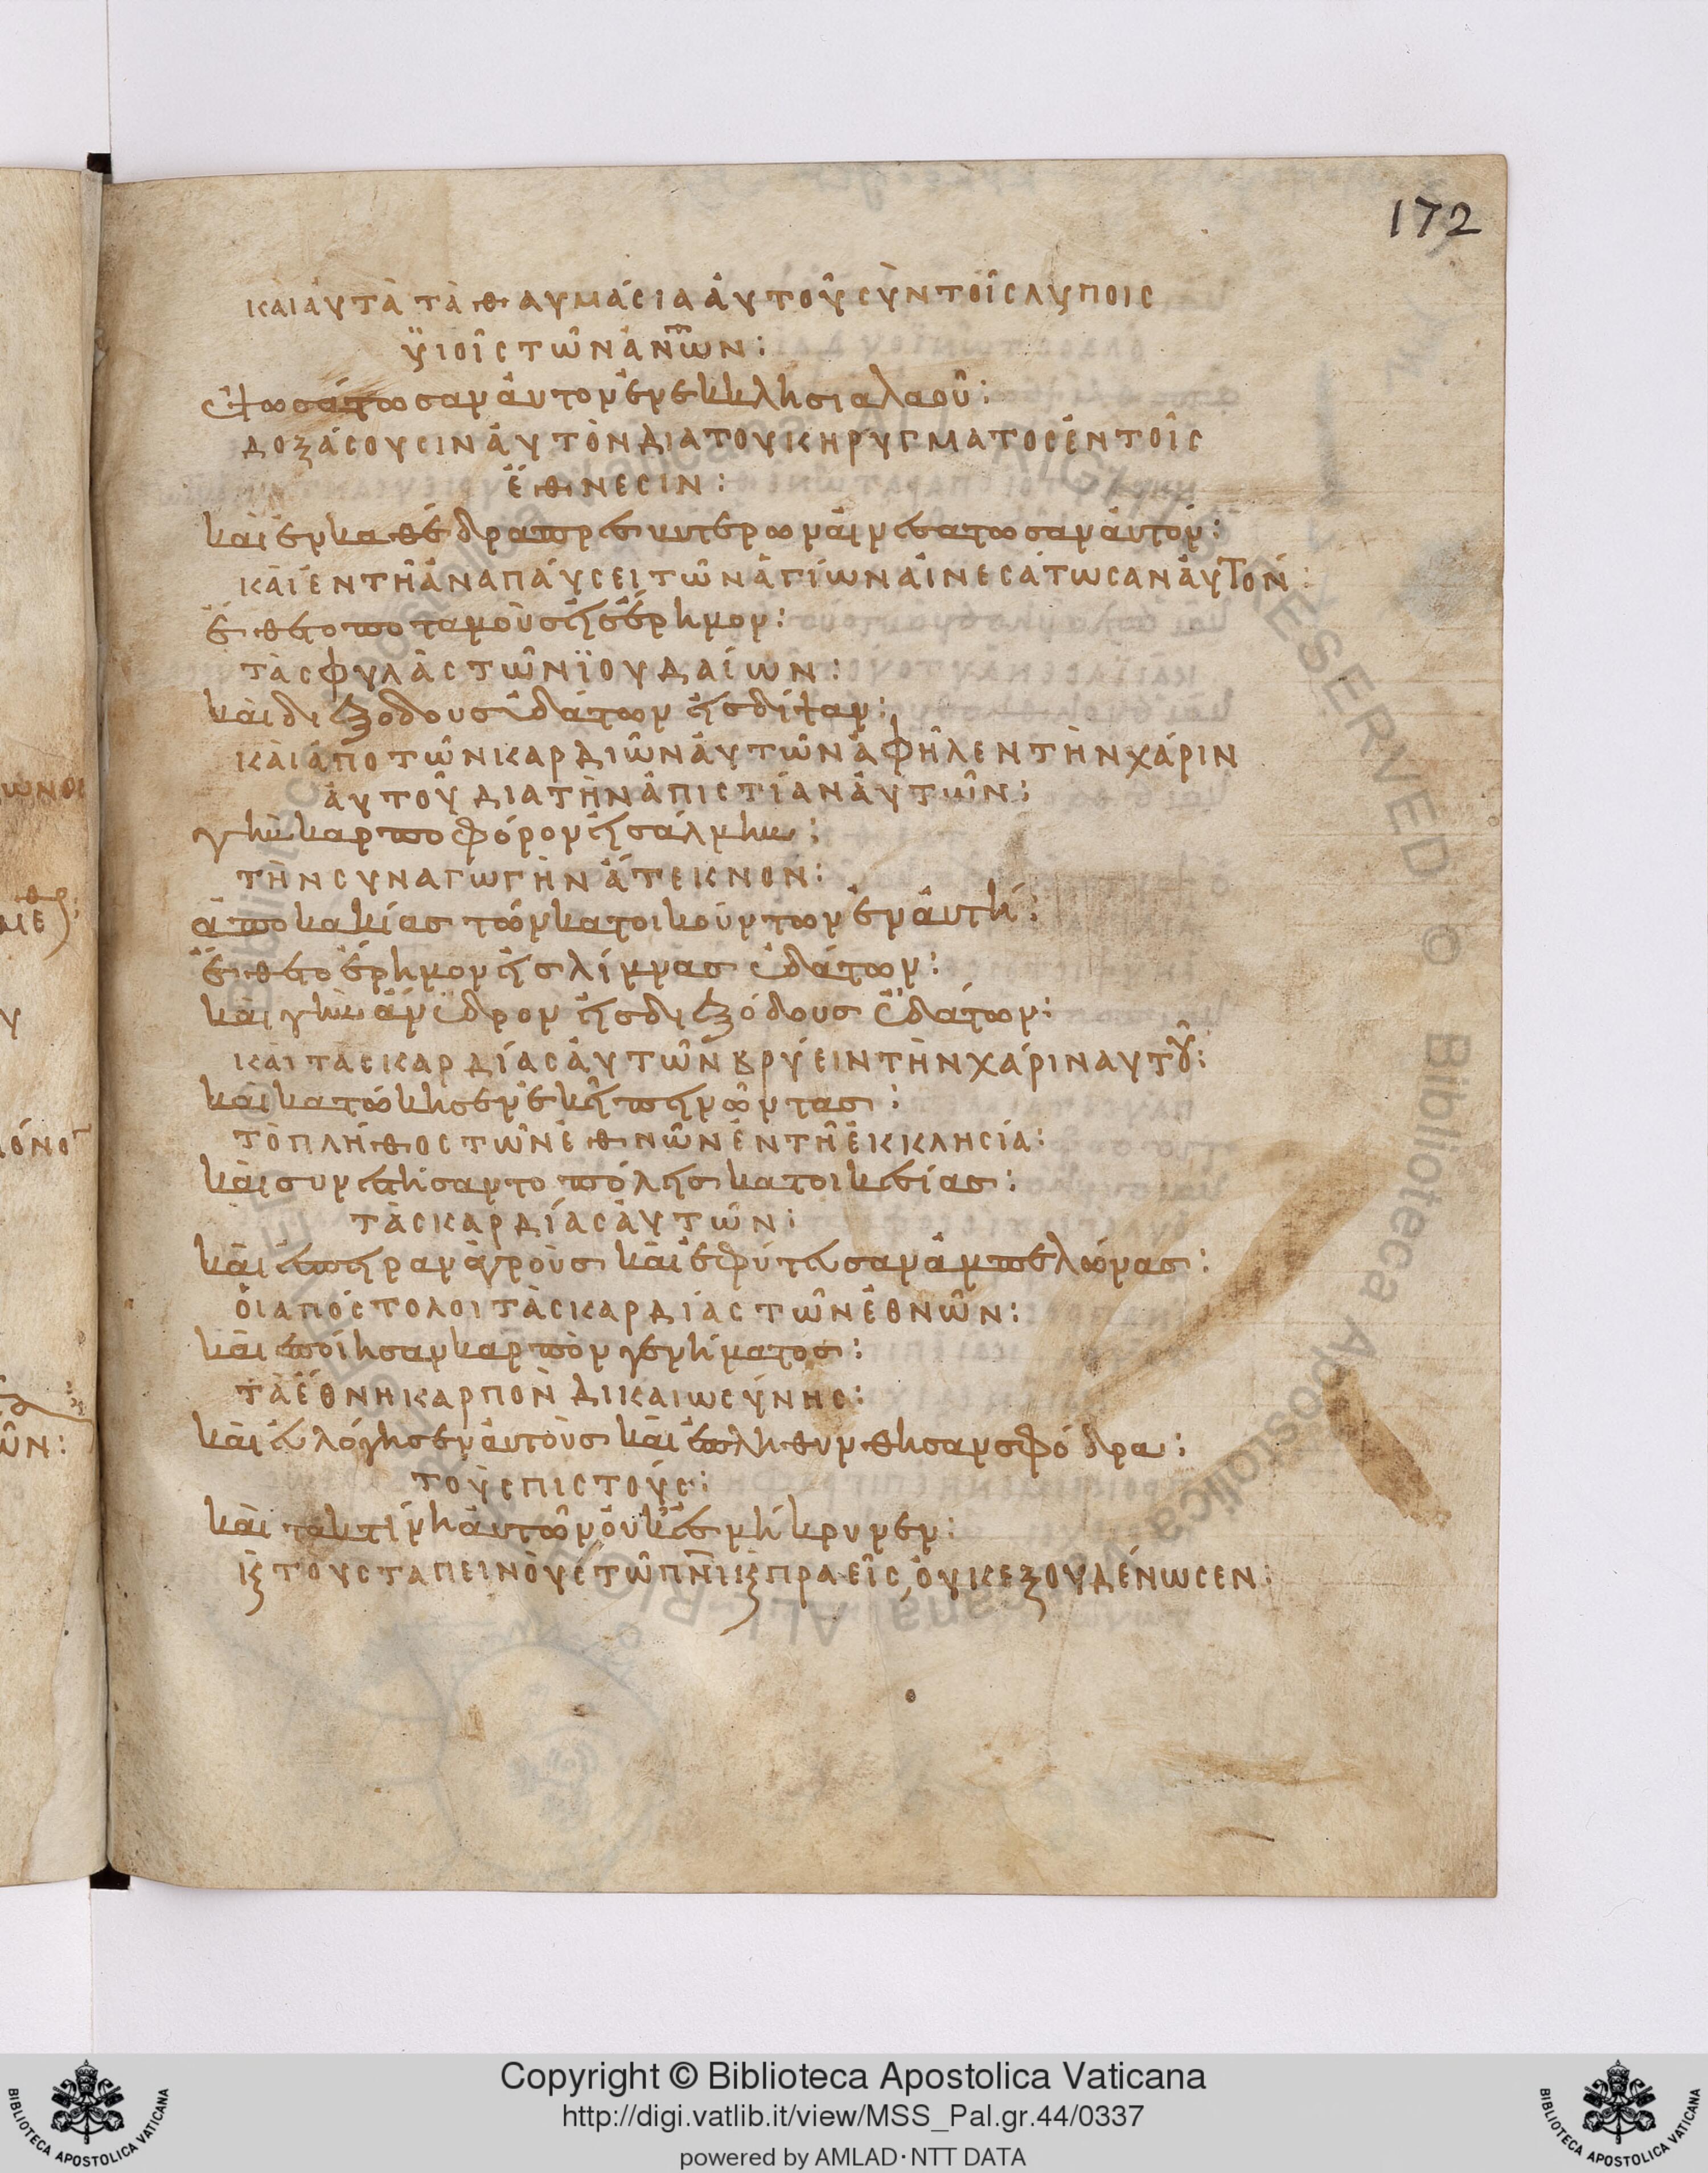 172
καὶ ἀυτὰ τὰ θαυμάσια ἀυτοῦ σὺν τοῖς λυποις
ϋιοῖς τῶν ἀν̅ω̅ν:
ὑψωσάτωσαν ἀυτον ἐν εκκλησια λαοῦ:
δοξάσουσιν ἀυτὸν δια του κηρυγματος ἐν τοῖς
ἔθνεσιν:
καὶ ἐν καθέδρα πρεσβυτέρων ἀινεσατωσαν ἀυτόν:
καὶ ἐν τῆ ἀναπάυσει τῶν ἁγίων ἀινεσάτωσαν ἀυτόν:
ἔθετο ποταμοὺς εἰς ἔρημον:
τὰς φυλὰς τῶν ϊουδαίων:
καὶ διεξοδους ὑδάτων εἰς δίψαν:
καὶ ἀπὸ τῶν καρδιῶν ἀυτῶν ἀφῆλεν τὴν χάριν
ἀυτοῦ δια τὴν ἀπιστίαν ἀυτῶν:
γὴν καρποφόρον εἰς άλμην:
τὴν συναγωγὴν ἄτεκνον:
ἀπο κακίας τῶν κατοικούντων ἐν ἀυτή:
ἔθετο ἔρημον εἰς λίμνας ὑδάτων:
καὶ γὴν ἄνυδρον εἰς διεξόδους ὑδάτων:
καὶ τὰς καρδίας ἀυτῶν βρύειν τὴν χάριν αυτοῦ:
καὶ κατώκησεν ἐκεῖ πεινῶντας:
τὸ πλήθος τῶν ἐθνῶν ἐν τῆ ἐκκλησία:
καὶ συνεστήσαντο πόλεις κατοικεσίας:
τὰς καρδίας ἀυτῶν:
καὶ ἔσπειραν ἀγροὺς καὶ ἐφύτευσαν ἀμπελώνας:
ὁι απόστολοι τὰς καρδίας τῶν ἐθνῶν:
καὶ εποίησαν καρπὸν γενήματος:
τὰ ἔθνη καρπὸν δικαιωσύνης:
καὶ ἐυλόγησεν ἀυτοὺς καὶ ἐπληθυνθησαν σφόδρα:
τοὺς πιστούς:
καὶ τα κτίνη ἀυτῶν ὀυκ ἐσμήκρυνεν:
κ̀ τους ταπεινὸυς τῶ πν̅ι κ̀ πραεῖς, ὀυκ εξουδένωσεν:
Copyright © Biblioteca Apostolica Vaticana
http://digi.vatlib.it/view/MSS_Pal.gr.44/0337
powered by AMLAD·NTT DATA
BIBLIOTECA APOSTOLICA VATICANA
BIBLIOTECA APOSTOLICA VATICANA